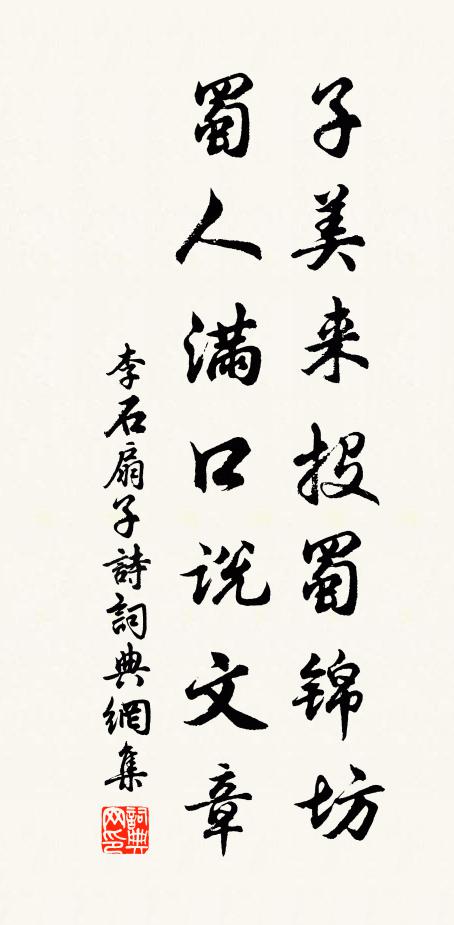 子美来投蜀锦坊
蜀人满口说文章
李石扇子詩詞典網集
詞典網印